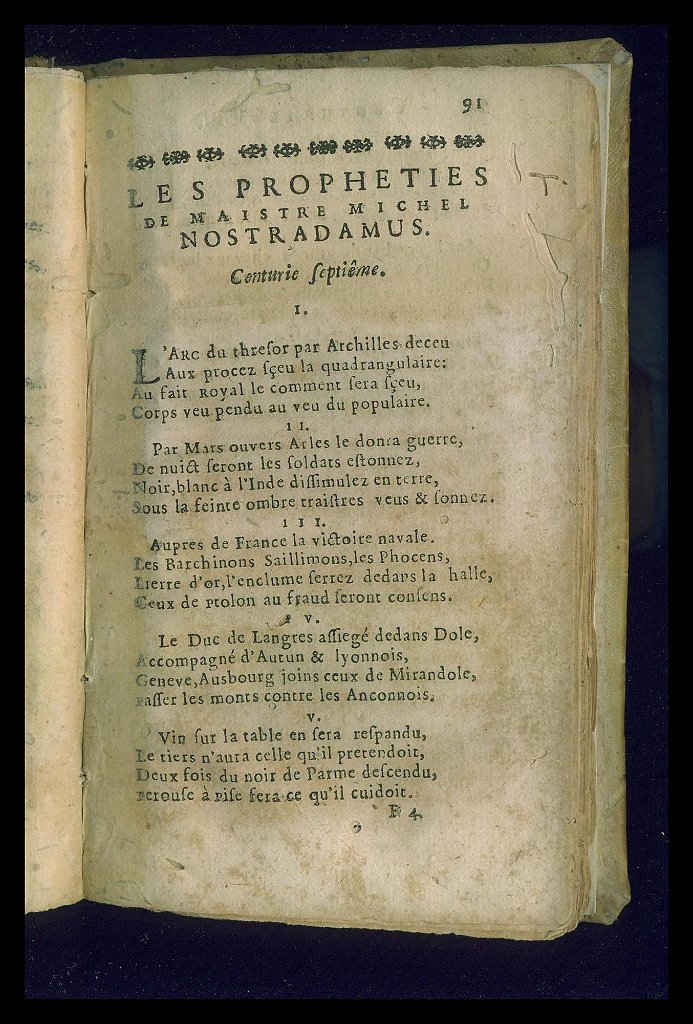 91
LES PROPHETIES
DE MAISTRE MICHEL
NOSTRADAMUS.
Centurie ſeptiême.
I.
L'ARC du threſor par Archilles deceu
Aux procez ſçeu la quadrangulaire:
Au fait Royal le comment ſera ſçeu,
Corps veu pendu au veu du populaire.
II.
Par Mars ouvers Arles le donra guerre,
De nuict ſeront les ſoldats eſtonnez,
Noir, blanc à l'Inde diſſimulez en terre,
Sous la feinte ombre traiſtres veus & ſonnez.
III.
Aupres de France la victoire navale.
Les Barchinons Saillimons, les Phocens,
Lierre d'or, l'enclume ſerrez dedans la halle,
Ceux de Ptolon au fraud ſeront conſens.
IV.
Le Duc de Langres aſſiegé dedans Dole,
Accompagné d'Autun & lyonnois,
Geneve, Ausbourg joins ceux de Mirandole,
Paſſer les monts contre les Anconnois.
V.
Vin ſur la table en ſera reſpandu,
Le tiers n'aura celle qu'il pretendoit,
Deux fois du noir de Parme deſcendu,
Perouſe à Piſe fera ce qu'il cuidoit.
F 4